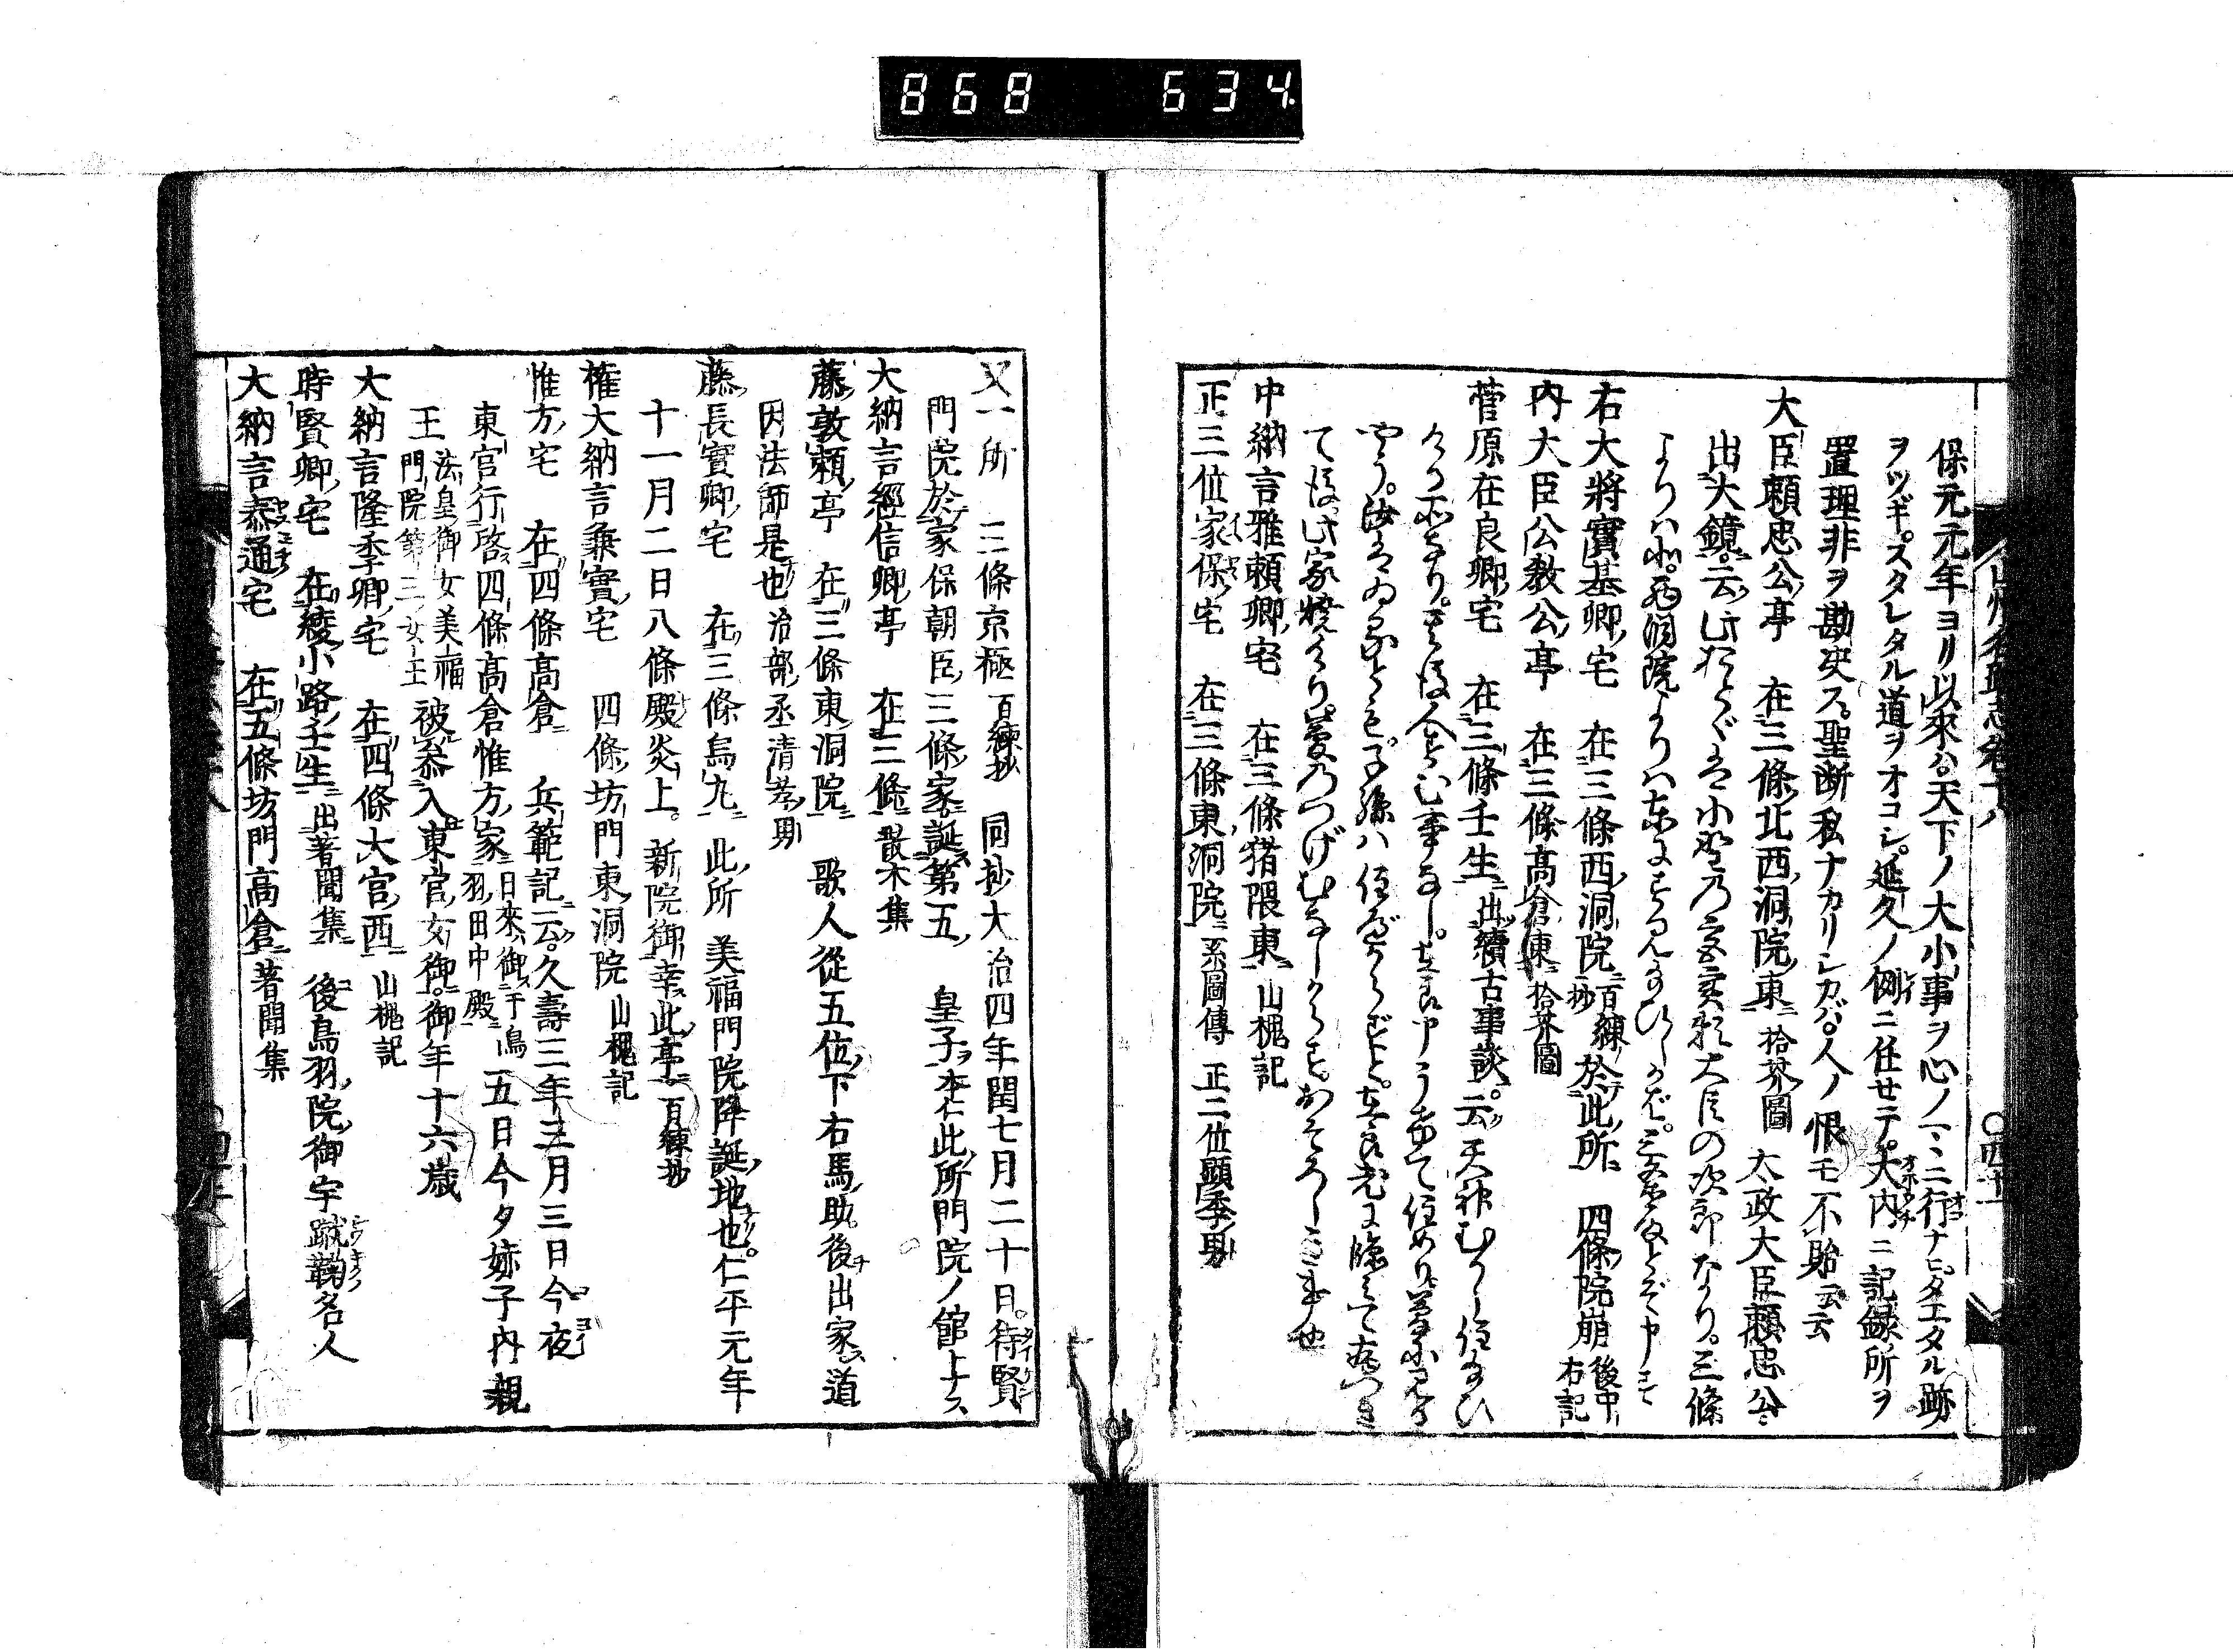 868 634
保元元年ヨリ以來ハ天下ノ大小事ヲ心ノマヽニ行ナヒタエタル跡
ヲツギスタレタル道ヲオコシ延久ノ例ニ任セテ大内ニ記録所ヲ
置理非ヲ勘决ス聖断私ナカリシカバ人ノ恨モ不貽云云
大臣頼忠公亭 在三條北西洞院東 拾芥圖 太政大臣頼忠公ハ
出大鏡云此おとゞは小野の宮実頼大臣の次郎なり三條
よりハ北西洞院よりハ東にすみ給ひしかバ三条殿とぞ申
右大將實基卿宅 在三條西洞院 百練抄 於此所 四條院崩 後中右記
内大臣公教公亭 在三條高倉東 拾芥圖
菅原在良卿宅 在三條壬生 出續古事談云天神むかし住給ひ
ける所なり其後人すむ事なし在良申うけて住めり夢に見る
やう汝はゐるとも子孫ハ住べからずと在良老に臨みて病つき
て後此家焼けり夢のつげむなしからずおそろしき事也
中納言雅頼卿宅 在三條猪隈東 山槐記
正三位家保宅 在三條東洞院 系圖傳 正二位顕季男
又一所 三條京極 百練抄 同抄大治四年閏七月二十日待賢
門院於家保朝臣三條家誕第五 皇子本仁此所門院ノ館トナス
大納言經信卿亭 在三條 散木集
藤敦頼亭 在三條東洞院 歌人從五位下右馬助後出家道
因法師是也治部丞清孝男
藤長實卿宅 在三條烏丸 此所 美福門院降誕地也仁平元年
十一月二日八條殿炎上新院御幸此亭 百練抄
権大納言兼實宅 四條坊門東洞院 山槐記
惟方宅 在四條高倉 兵範記云久壽三年三月三日今夜
東宮行啓四條高倉惟方家 日來御于鳥羽田中殿 五日今夕姉子内親
王 法皇御女美福門院第三女王 被参入東宮女御御年十六歳
大納言隆季卿宅 在四條大宮西 山槐記
時賢卿宅 在綾小路壬生 出著聞集 後鳥羽院御宇蹴鞠名人
大納言泰通宅 在五條坊門高倉 著聞集